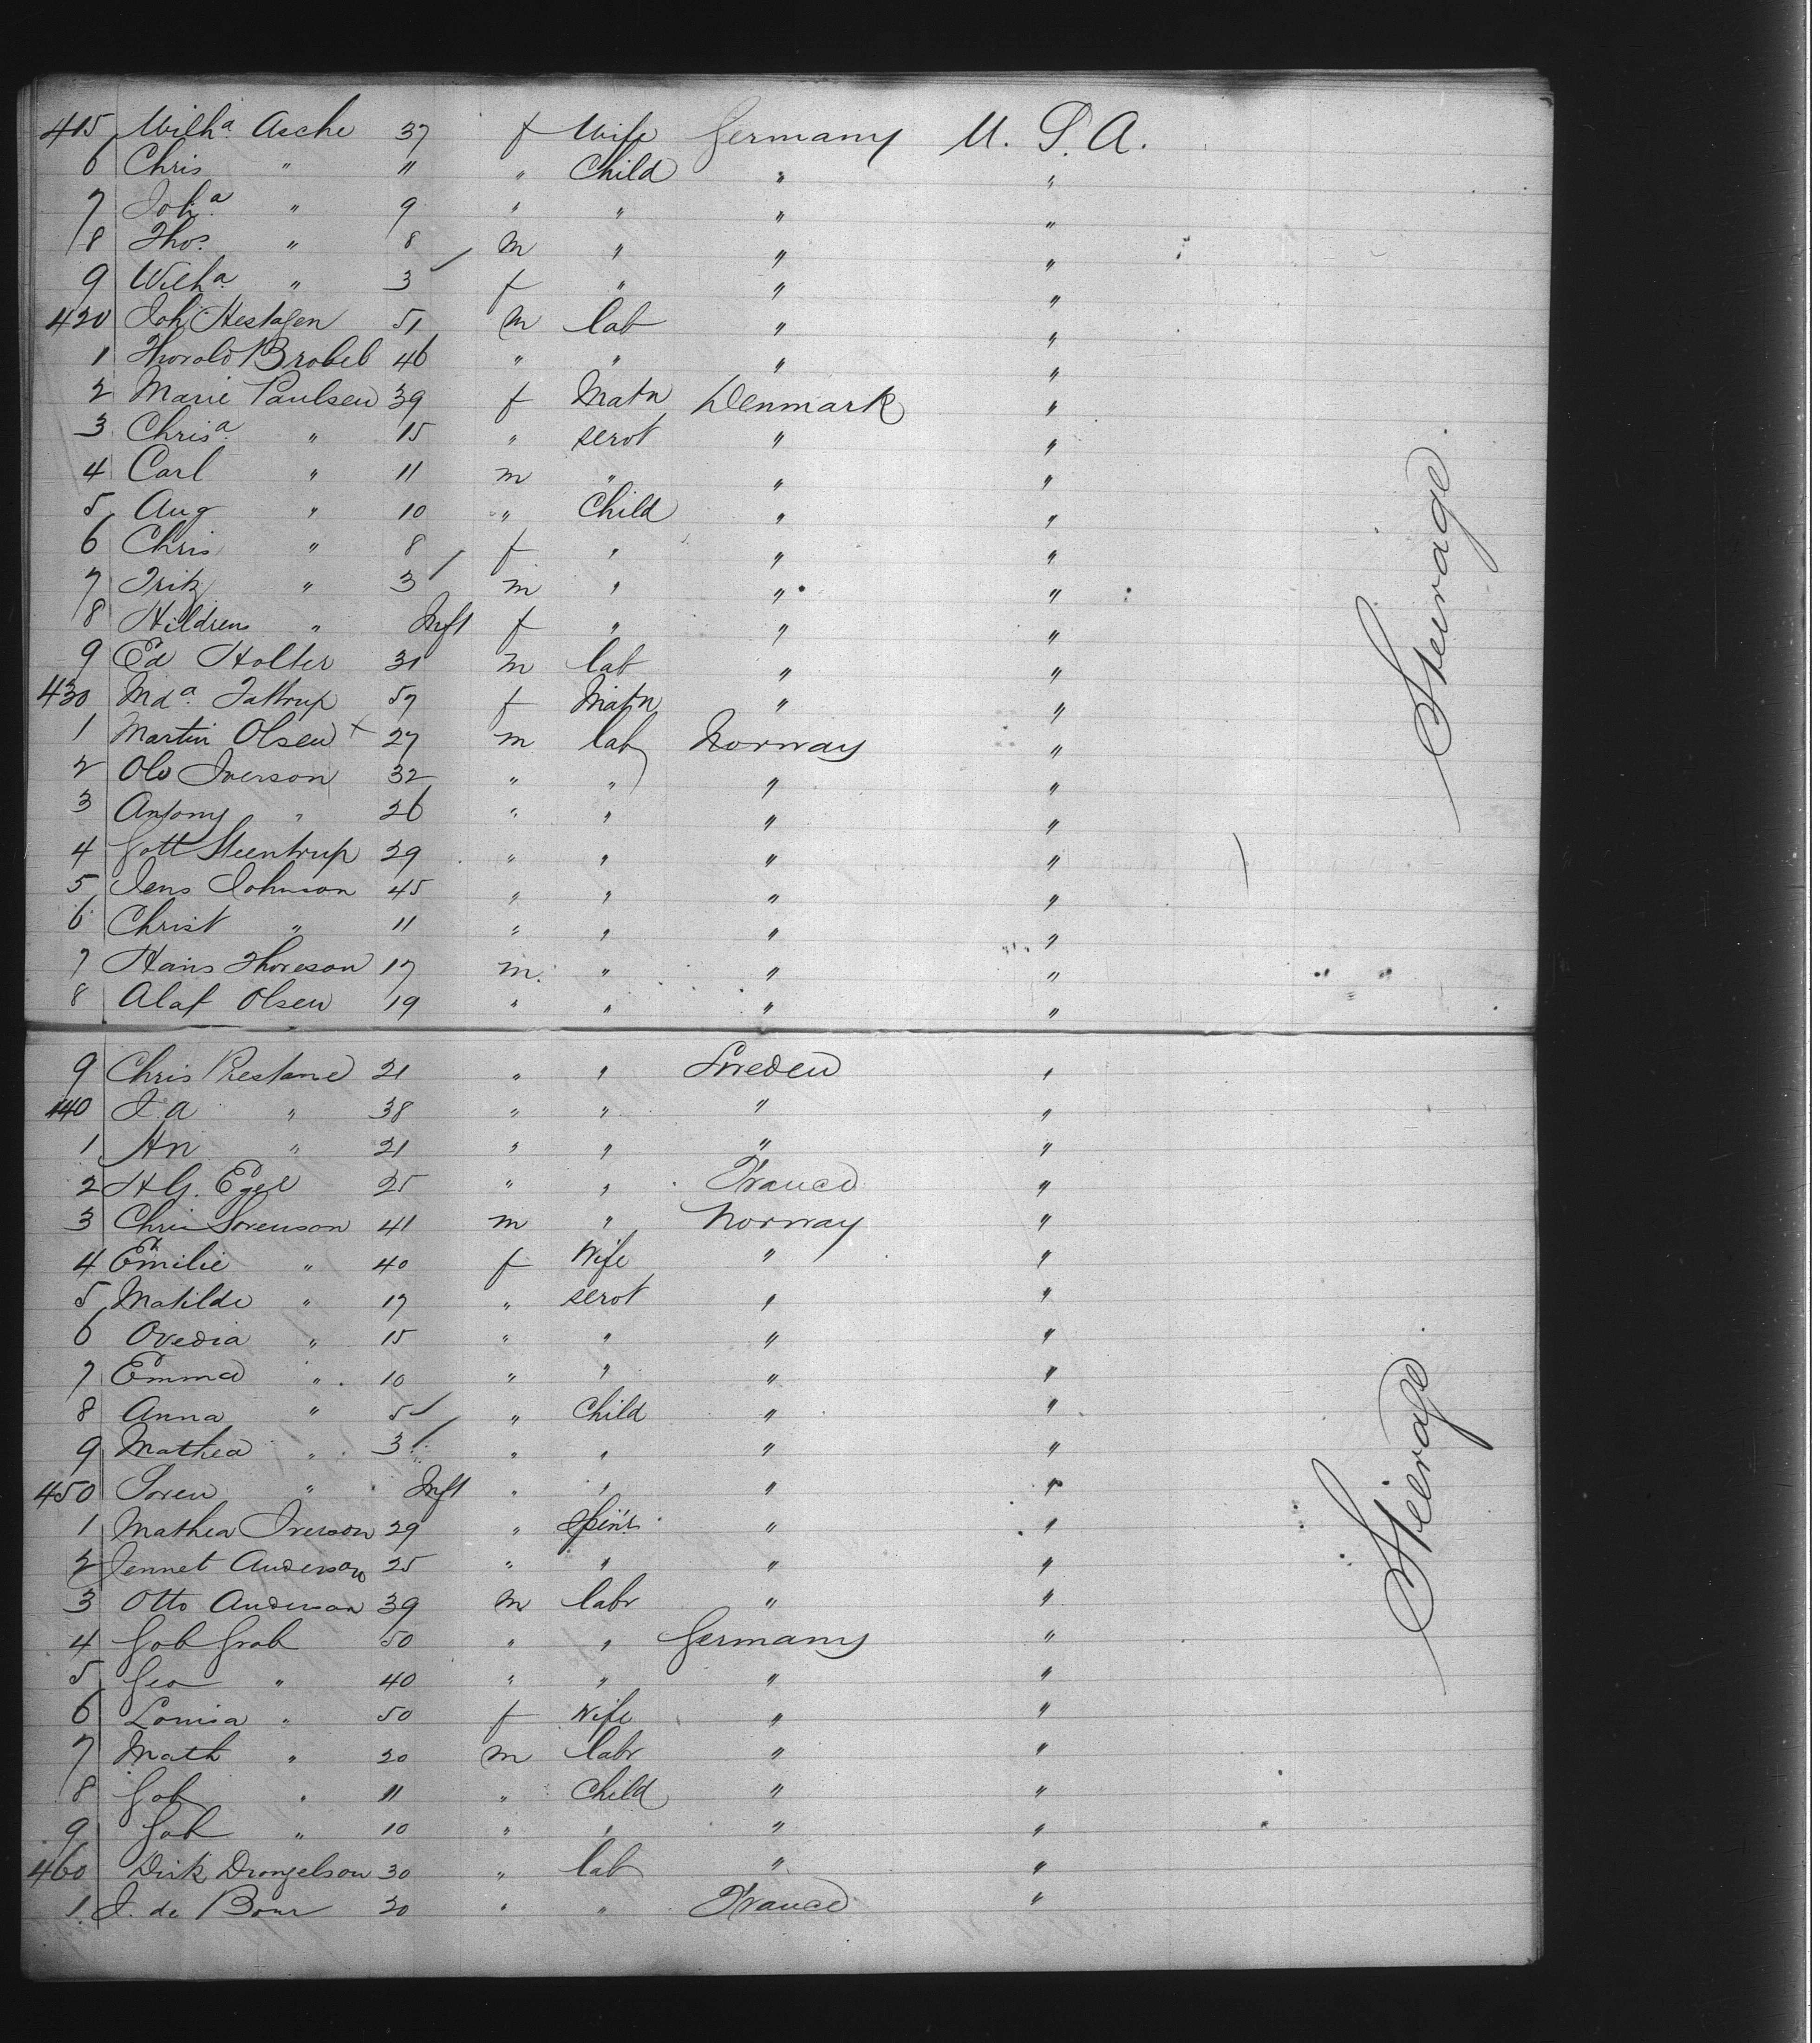 415 Wilhª Asche 37 f Wife Germany U. S. A.
6 Chris " 11 " Child " "
7 Johª " 9 " " " "
8 Thos. " 8 m " " "
9 Wilhª " 3 f " " "
420 Joh Hestagen 51 m lab " "
1 Thorald Brobel 46 " " " "
2 Marie Paulsen 39 f Matn Denmark "
3 Chrisª " 15 " servt " "
4 Carl " 11 m " " "
5 Aug " 10 " Child " "
6 Chris " 8 f " " "
7 Fritz " 3 m " " "
8 Hildren " Inft f " " "
9 Ed Holter 31 m lab " "
430 Mdª Tattrup 57 f Matn " "
1 Martin Olsen + 27 m lab Norway "
2 Olo Iverson 32 " " " "
3 Antony " 26 " " " "
4 Gott Steentrup 29 " " " "
5 Jens Johnson 45 " " " "
6 Christ " 11 " " " "
7 Hans Thoreson 17 m " " "
8 Alaf Olsen 19 " " " "
9 Chris 21 " " Sweden "
440 J. A " 38 " " " "
1 An " 21 " " " "
2 H G. Egel 25 " " France "
3 Chris Sorenson 41 m " Norway "
4 Emilie " 40 f Wife " "
5 Matilde " 17 " servt " "
6 Ovedia " 15 " " " "
7 Emma " 10 " " " "
8 Anna " 5 " Child " "
9 Mathea " 3 " " " "
450 Soren " Inft " " " "
1 Mathea Iverson 29 " Spinr " "
2 Jennet Anderson 25 " " " "
3 Otto Anderson 39 m labr " "
4 Gob Grob 50 " " Germany "
5 Geo " 40 " " " "
6 Louisa " 50 f Wife " "
7 Math " 20 m labr " "
8 Gob " 11 " Child " "
9 Gob " 10 " " " "
460 Dirk Drongelson 30 " lab " "
1 J. de Bour 20 " " France "
Steerage
Steerage